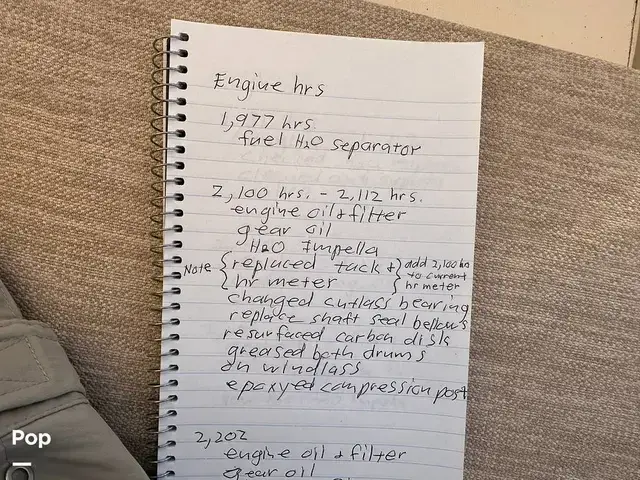 Engine hrs
1,977 hrs.
fuel H2O separator
2,100 hrs. - 2,112 hrs.
engine oil & filter
gear oil
H2O Impella
Note { replaced tack & } add 2,100 hrs
hr meter to current
hr meter
changed cutlass bearing
replace shaft seal bellows
resurfaced carbon disks
greased both drums
on windlass
epoxyed compression post
2,202
engine oil & filter
gear oil
Pop